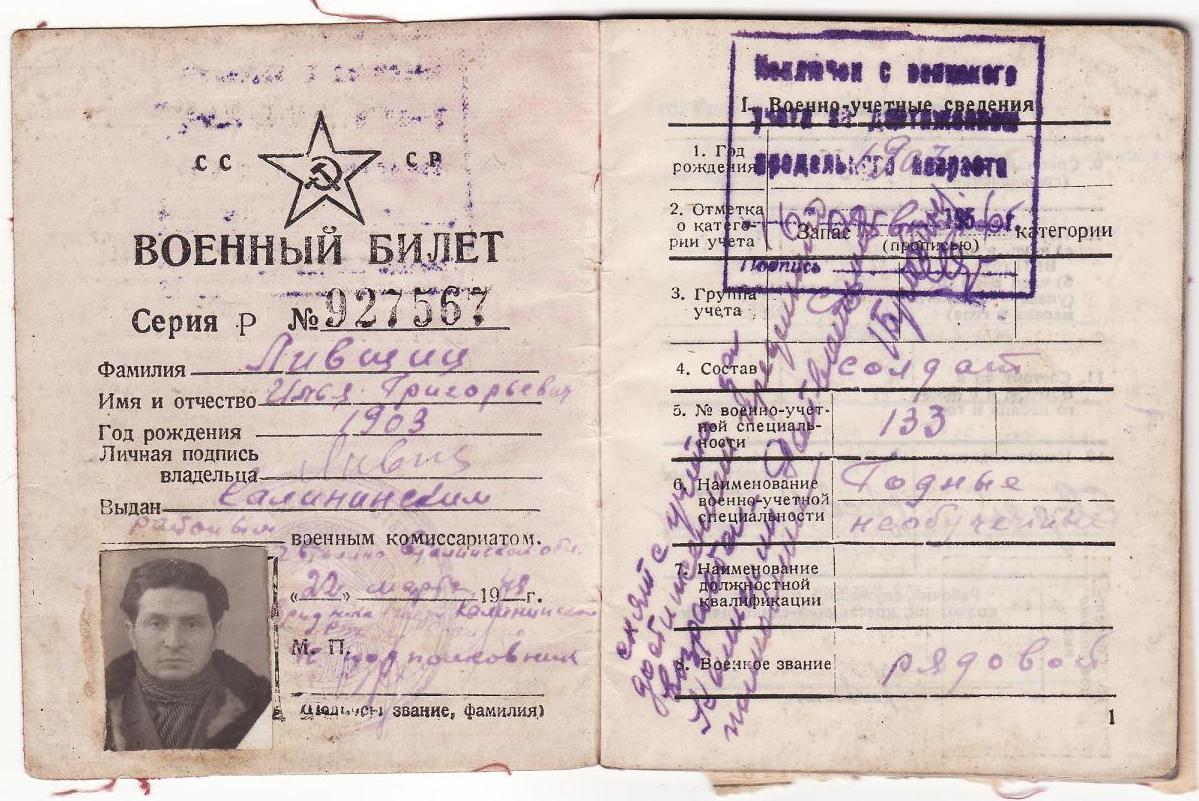 СССР
ВОЕННЫЙ БИЛЕТ
Серия Р № 927567
Фамилия Лившиц
Имя и отчество Илья Григорьевич
Год рождения 1903
Личная подпись
владельца Лившиц
Выдан Калининским
районным военным комиссариатом.
«22» марта 1948 г.
М. П.
подполковник
звание, фамилия)
Исключен с воинского
учета по достижении
предельного возраста
Подпись
I. Военно-учетные сведения
1. Год
рождения
2. Отметка
о катего-
рии учета
Запас категории
(прописью)
3. Группа
учета
4. Состав солдат
5. № военно-учет-
ной специаль-
ности
133
6. Наименование
военно-учетной
специальности
Годные
необученные
7. Наименование
должностной
квалификации
8. Военное звание рядовой
снят с учёта за
достижением предельного
возраста
1